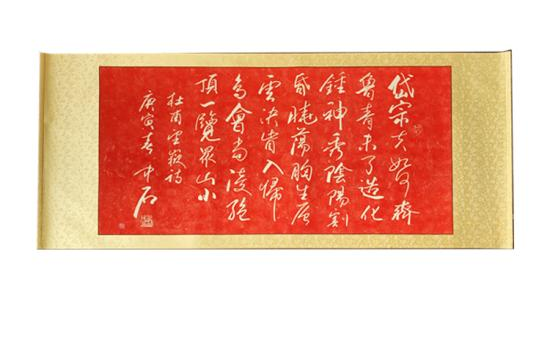 岱宗夫如何齊
魯青未了造化
鍾神秀陰陽割
昏曉蕩胸生層
雲決眥入歸
鳥會當凌絕
頂一覽眾山小
杜甫望嶽詩
庚寅春中石